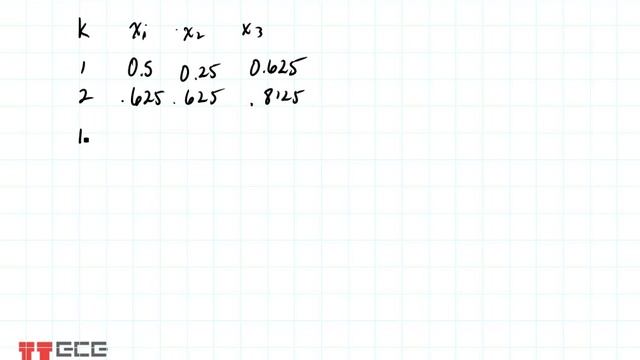 k x₁ x₂ x₃
1 0.5 0.25 0.625
2 .625 .625 .8125
1
TTECE